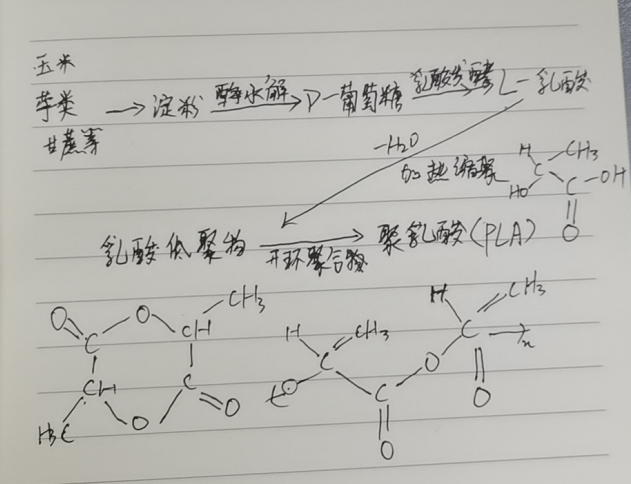 玉米
芋类 → 淀粉 酶水解 D-葡萄糖 乳酸发酵 L-乳酸
甘蔗等
-H2O
加热缩聚
H CH3
HO C C-OH
O
乳酸低聚物 开环聚合物 聚乳酸(PLA)
O O CH CH3
C
CH C O
H3C O
H C CH3 O H C CH3 n
O C
O O